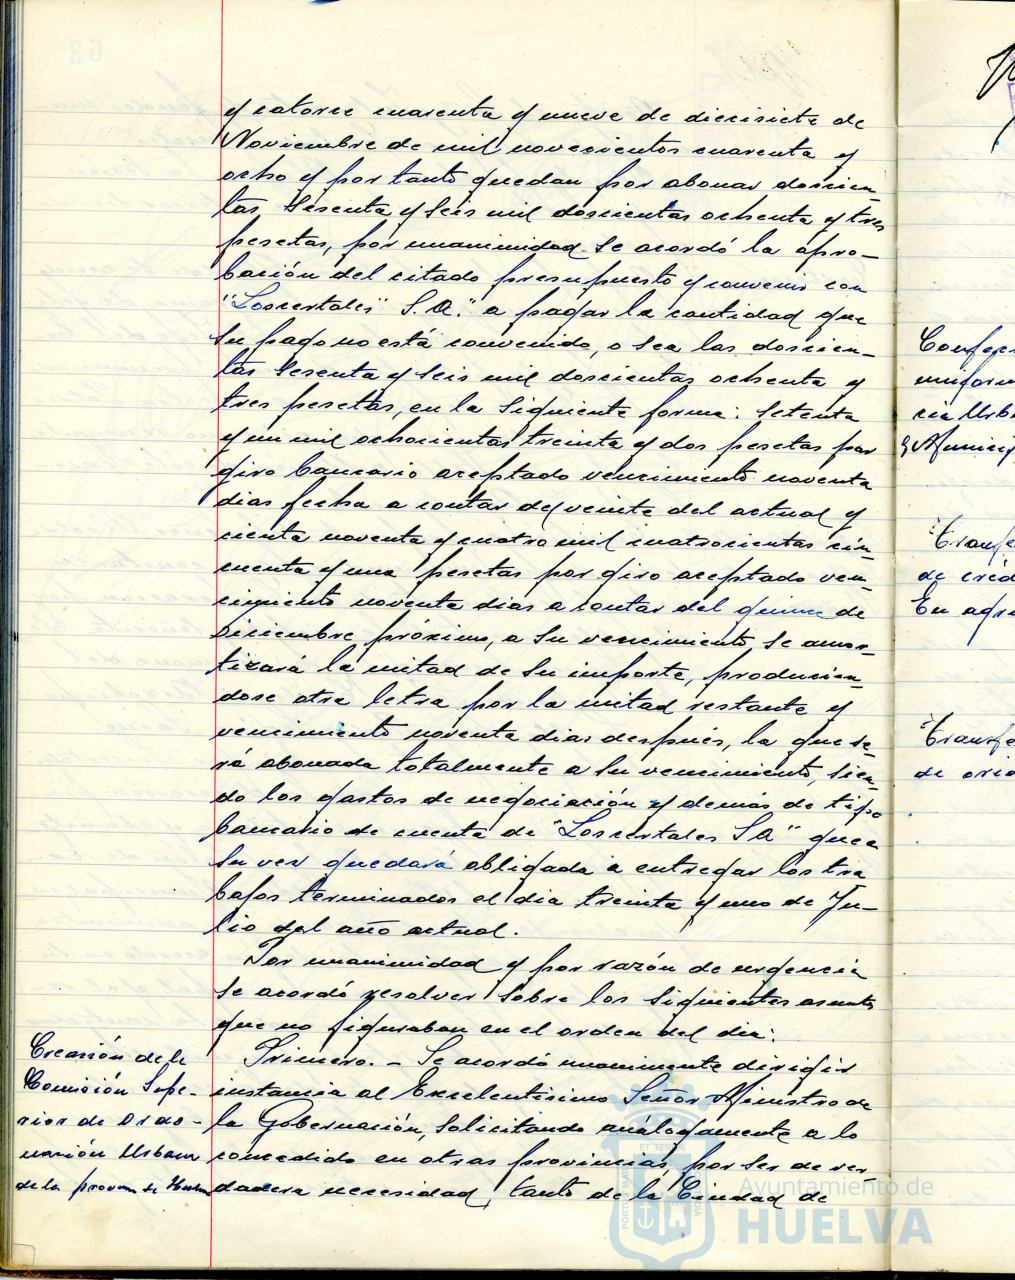 y catorce cuarenta y nueve de diecisiete de
Noviembre de mil novecientos cuarenta y
ocho y por tanto quedan por abonar doscien-
tas sesenta y seis mil doscientas ochenta y tres
pesetas, por unanimidad se acordó la apro-
bación del citado presupuesto y convenir con
"Loscertales" S.A." a pagar la cantidad que
su pago no está convenido, o sea las doscien-
tas sesenta y seis mil doscientas ochenta y
tres pesetas, en la siguiente forma: setenta
y un mil ochocientas treinta y dos pesetas por
giro bancario aceptado vencimiento noventa
dias fecha a contar del veinte del actual y
ciento noventa y cuatro mil cuatrocientas cin-
cuenta y una pesetas por giro aceptado ven-
cimiento noventa dias a contar del quince de
Diciembre próximo, a su vencimiento se amor-
tizará la mitad de su importe, producien-
dose otra letra por la mitad restante y
vencimiento noventa dias después, la que se-
rá abonada totalmente a su vencimiento, sien-
do los gastos de negociación y demás de tipo
bancario de cuenta de "Loscertales SA" que a
su vez quedará obligada a entregar los tra
bajos terminados el dia treinta y uno de Ju-
lio del año actual.
Por unanimidad y por razón de urgencia
se acordó resolver sobre los siguientes asuntos
que no figuraban en el orden del dia:
Creación de la
Comisión Supe-
rior de Orde-
nación Urbana
de la provin de Huelva
Primero. - Se acordó unanimente dirigir
instancia al Excelentísimo Señor Ministro de
la Gobernación, solicitando análogamente a lo
concedido en otras provincias, por ser de ver-
dadera necesidad, tanto de la Ciudad de
Ayuntamiento de
HUELVA
63
Confec
uniform
cia Urba
y Municip
Transfe
de créd
En agru
Transfe
de